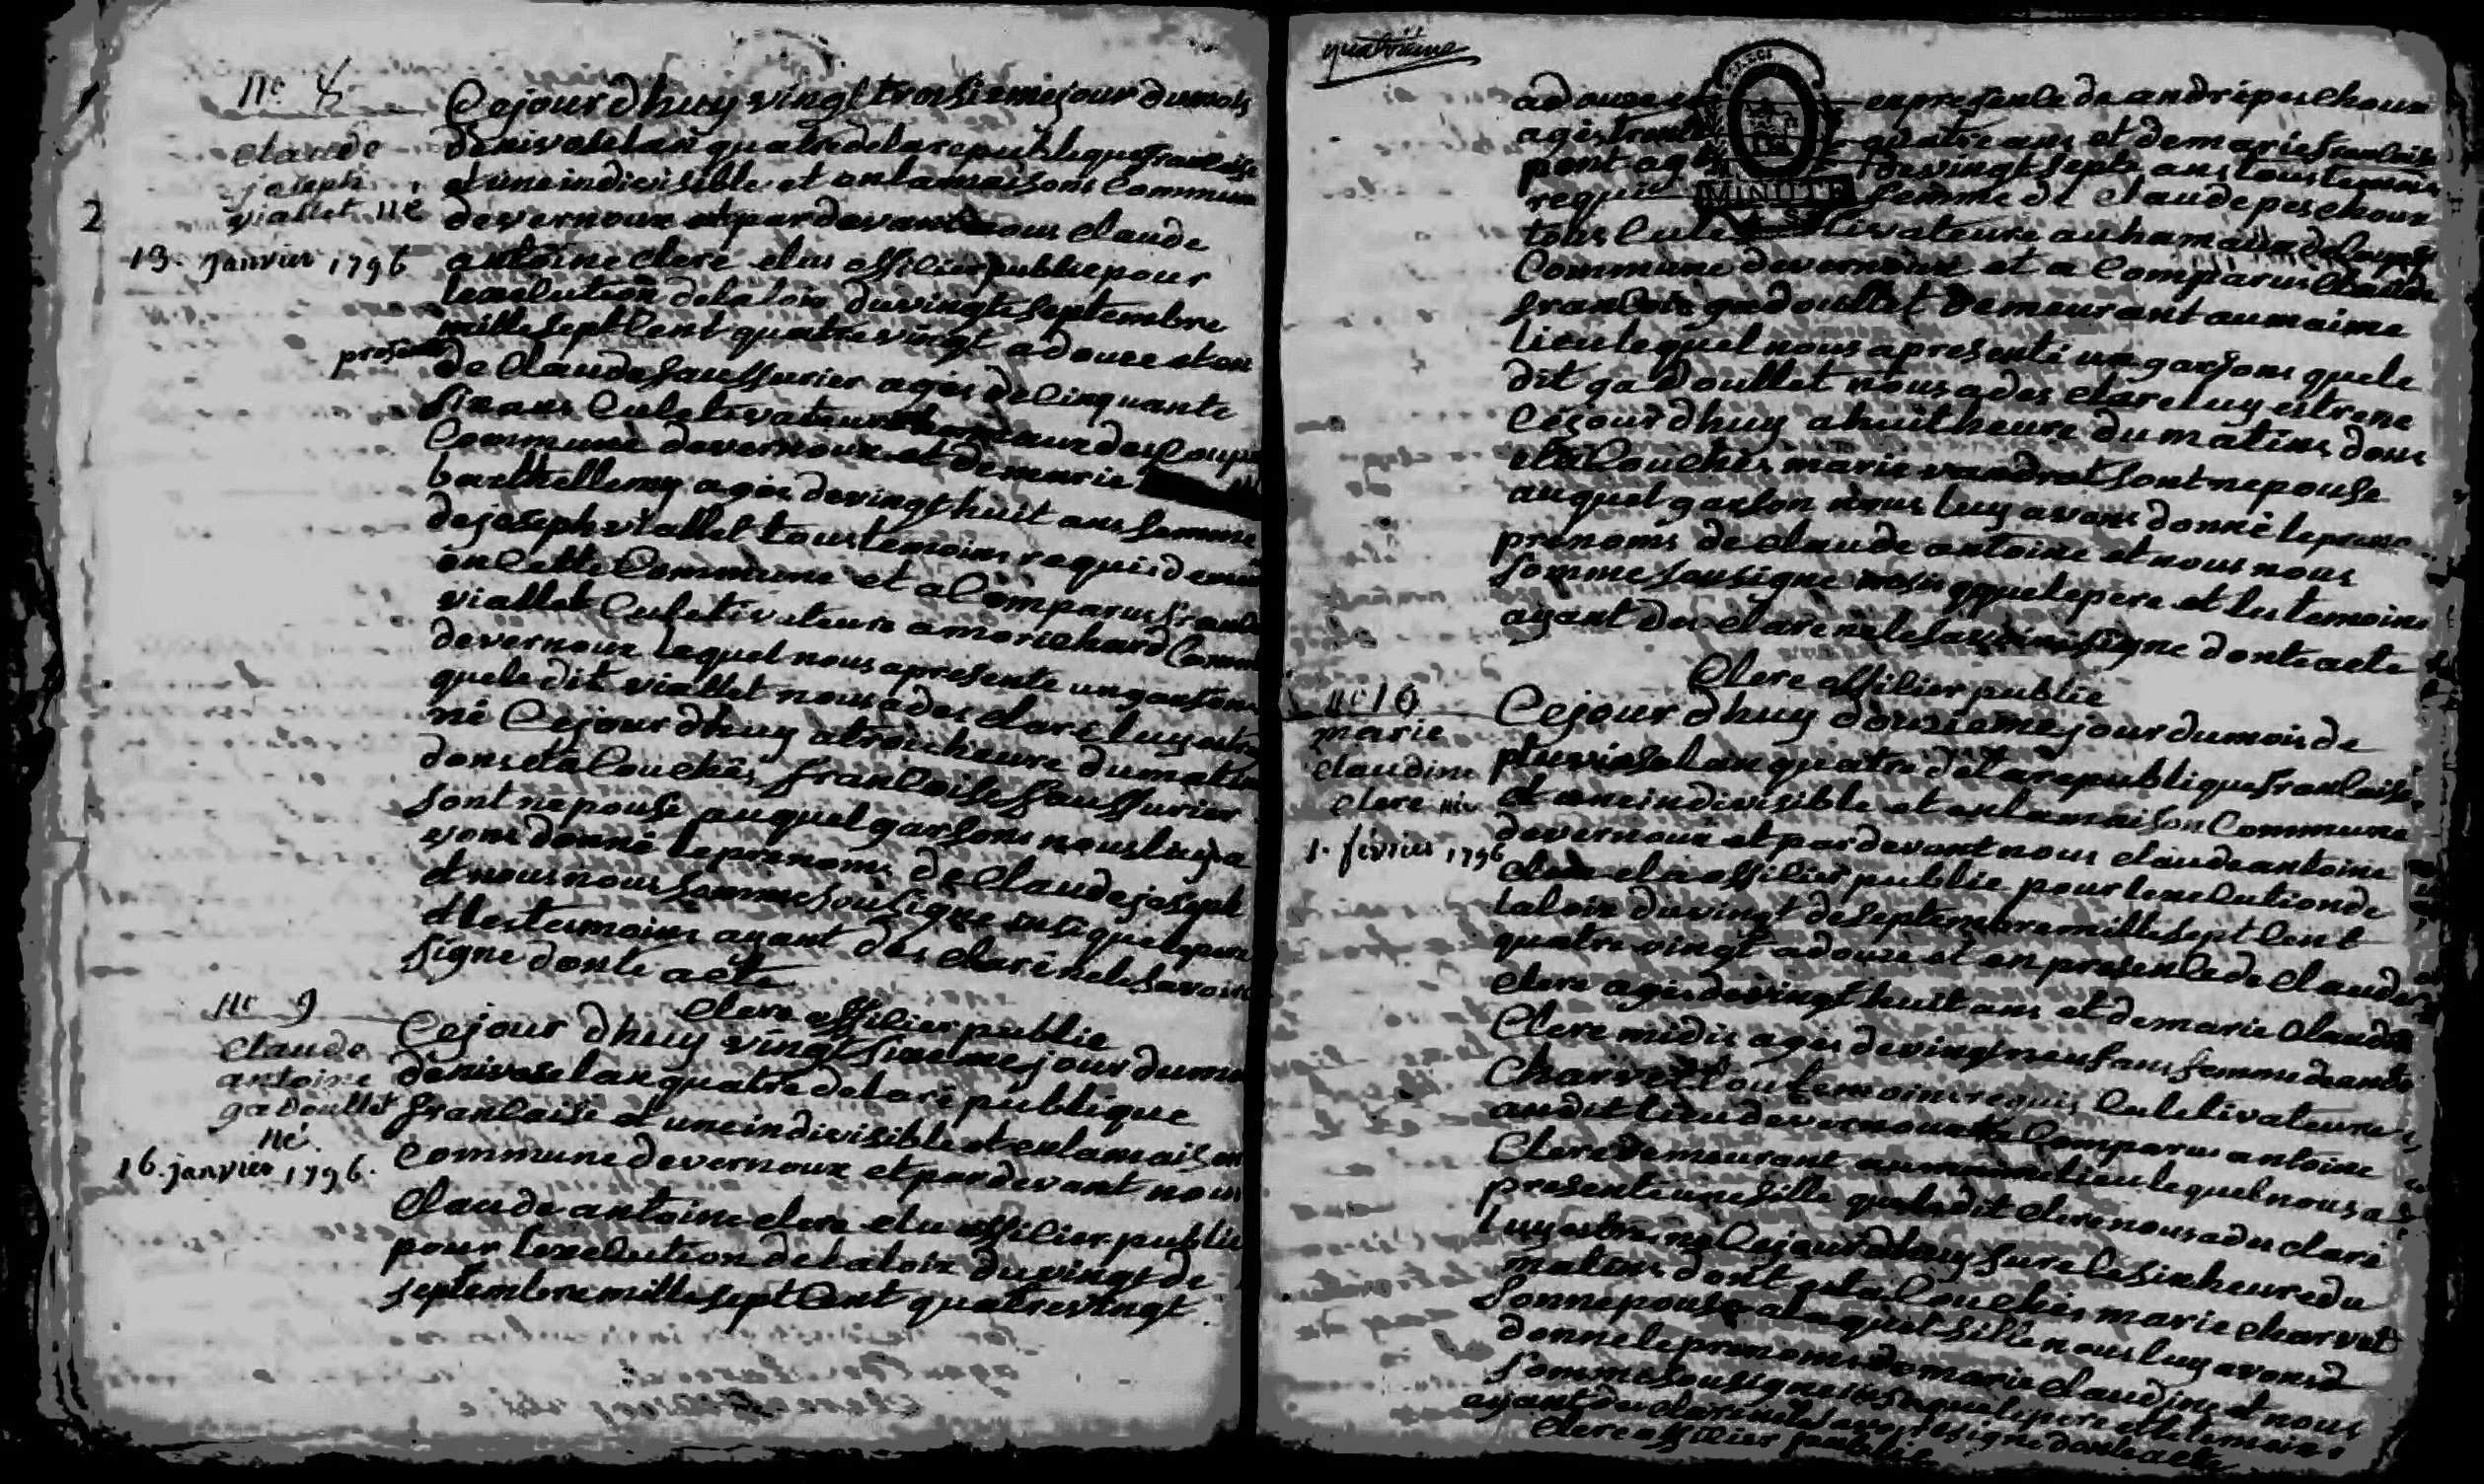 nº 8
Claude
joseph
viallet né
13. janvier 1796
2
Cejourdhuy vingt troisieme jour du mois
de nivose lan quatre de la republique francaise
et une indivisible et en la maisons Commune
de vernoux et par devant nous claude
antoine clere elus offilier public pour
lexecution de la loix du vingts septembre
mille sept Cent quatre vingt a douze et en
presence
de Claude saussurier agés de Cinquante
six ans Culetivateur hameaux des Coupe
Commune de vernoux et de marie
barthellemy agée de vingt huit ans femme
de joseph viallet tous temoins requis
en Cette Commune et a Comparus
viallet Culetivateure a morichard Comm
de vernoux lequel nous a presente un garson
quele dit viallet nous a des clare luy estre
né Cejourdhuy a trois heure du matin
dons eta Couchés francoise saussurier
sont nepouse auquel garsons nous luy a
vons donné le prenoms de Claude joseph
et nous nous somme sousigne insique le pere
et les temoins ayant des claré ne le savoire
signe donte acte
Clere offilier public
nº 9
Claude
antoine
gadoullet
né.
16. janvier 1796.
Cejour dhuy vingt sixieme jour du mo
de nivose lan quatre de la re publique
francaise et une indivisible et en la maison
Commune de vernoux et par devant nous
Claude antoine clere elu offilier public
pour lexecution de la loix du vingt de
septembre mille sept Cent quatre vingt
quatrieme
a douze et en presence de andré peschoux
agés trente quatre ans et de marie francoise
pont agée de vingt sept ans tous temoins
requis femme de Claude peschoux
tous Culetivateure au hamaux de
Commune de vernoux et a Comparus Claude
francois gadoullet demeurant au maime
lieu lequel nous a presenté un garsons quele
dit gadoullet nous a des clare luy estre ne
Cejourdhuy a huit heure du matins dons
eta Couchés marie vandrot sont nepouse
auquel garson nous luy avons donné le
prenoms de claude antoine et nous nous
somme sousigne insique le pere et les temoins
ayant des clare ne le savoire signe donte acte
Clere offilier public
MINUTE
nº 10
marie
claudine
clere née
1. février 1796
Cejour dhuy douzieme jour du mois de
pluviose lan quatre de la republique francaise
et une indivisible et en la maison Commune
de vernoux et par devant nous claude antoine
clere elu offilier public pour lexecution de
la loix du vingt de septembre mille sept Cent
quatre vingt a douze et en presence de Claude
clere agés de vingt huit ans et de marie Claude
Clere midis agés de vingt neuf ans femme de
Charvet tou temoins requis Culetivateure
au dit lieu de vernoux a Comparus antoine
Clere demeurant au meme lieu lequel nous a
presente une fille quele dit clere nous a des claré
luy estre ne Cejourdhuy sure le six heure du
matin dont eta Couchés marie charvet
sonne pouse a laquel fille nous luy avons
donne le prenoms de marie Claudine et nous
somme sousigne insique le pere et le temoins
ayant des clare ne le savoir signe donte acte
Clere offilier public